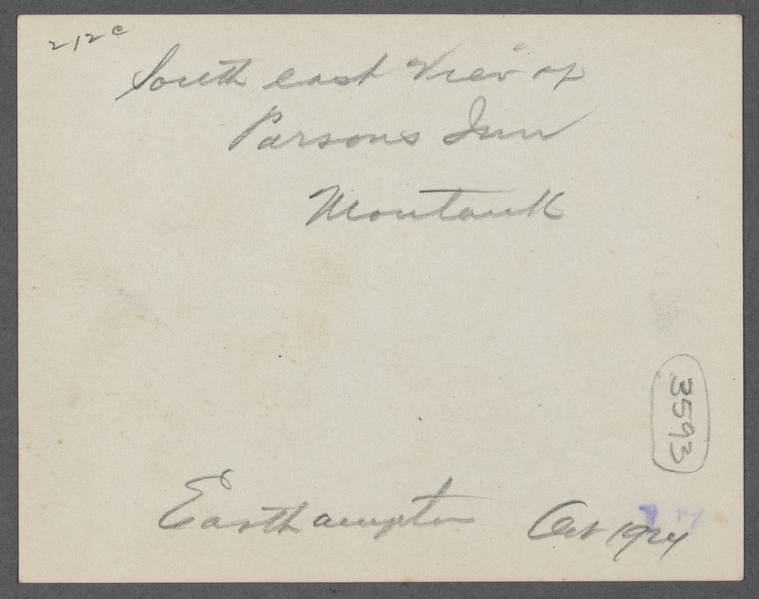 212c
South east View of
Parsons Inn
Montauk
3593
Easthampton Oct 1924